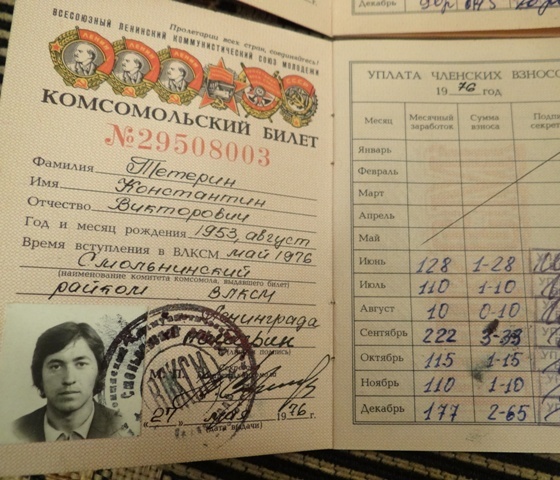 Пролетарии всех стран, соединяйтесь!
ВСЕСОЮЗНЫЙ ЛЕНИНСКИЙ КОММУНИСТИЧЕСКИЙ СОЮЗ МОЛОДЕЖИ
КОМСОМОЛЬСКИЙ БИЛЕТ
№29508003
Фамилия Тетерин
Имя Константин
Отчество Викторович
Год и месяц рождения 1953, август
Время вступления в ВЛКСМ май 1976
Смольнинский
(наименование комитета комсомола, выдавшего билет)
райком ВЛКСМ
Ленинграда
(личная подпись)
ВЛКСМ
«27» мая 1976 г.
(дата выдачи)
Декабрь
УПЛАТА ЧЛЕНСКИХ ВЗНОСО
1976 год
Месяц Месячный заработок Сумма взноса
Январь
Февраль
Март
Апрель
Май
Июнь 128 1-28
Июль 110 1-10
Август 10 0-10
Сентябрь 222
Октябрь 115 1-15
Ноябрь 110 1-10
Декабрь 177 2-65